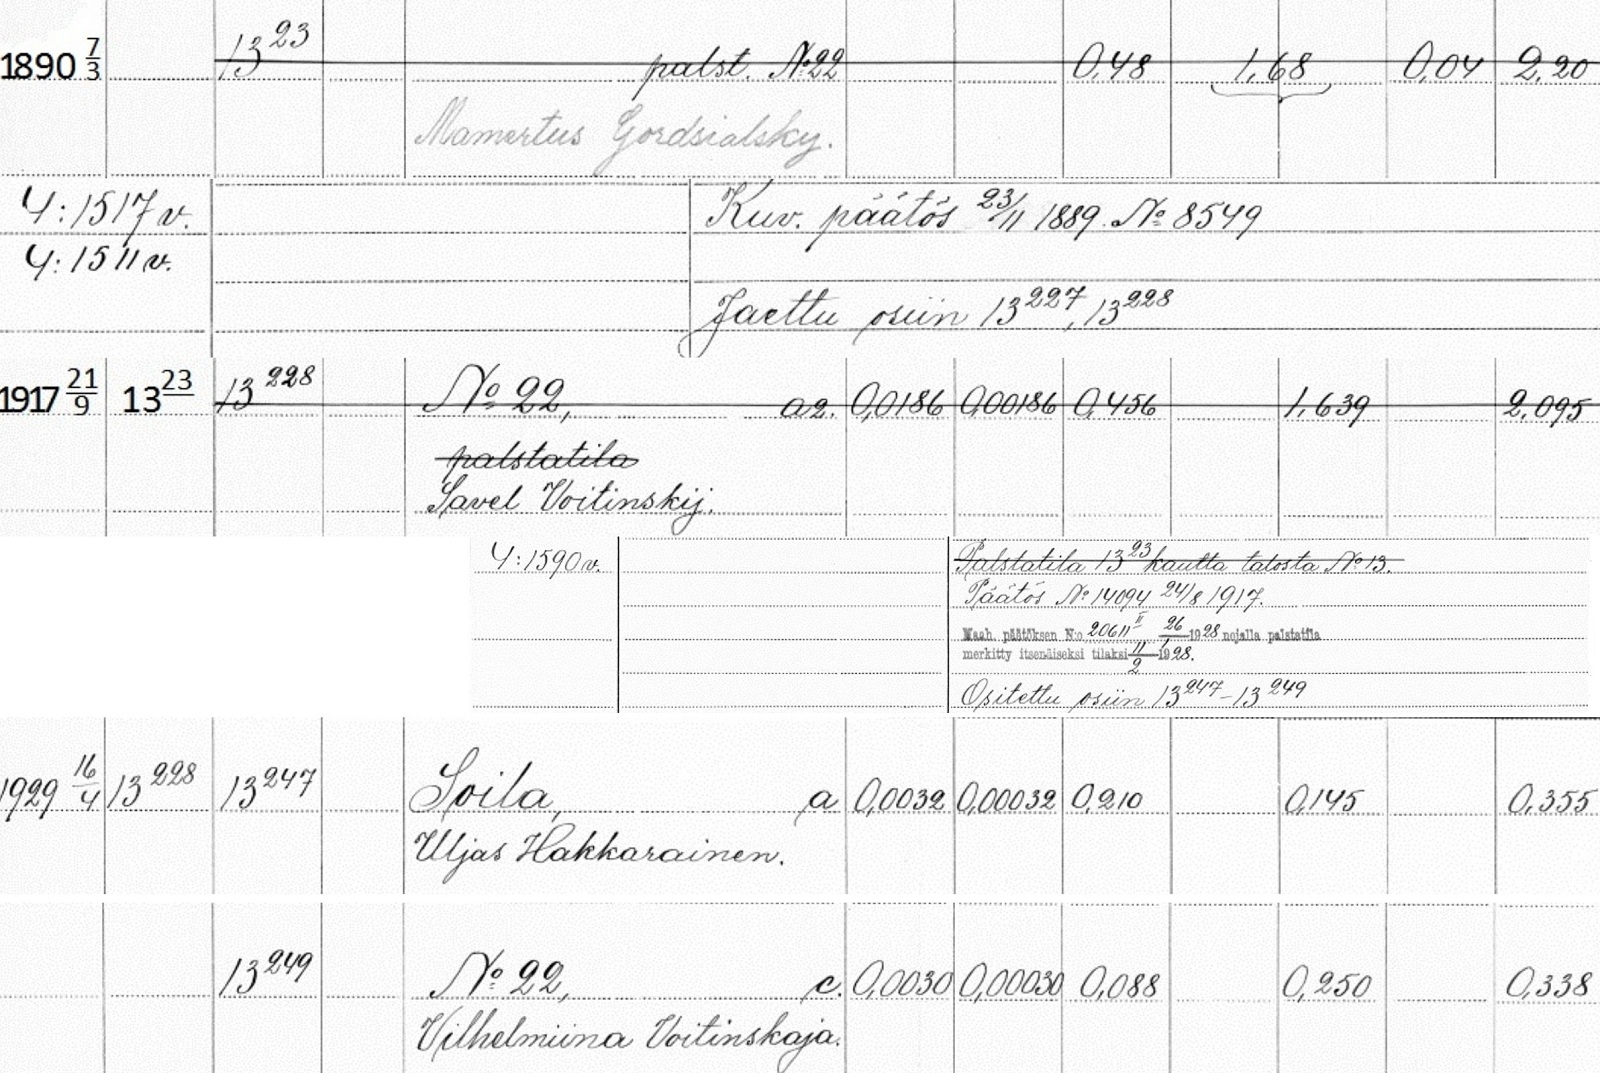 1890 7/3 13²³ palst. №22 0,48 1,68 0,04 2,20
Mamertus Gordsialsky.
4:1517 v. Kuv. päätös 23/11 1889. № 8549
4:1511 v.
Jaettu osiin 13²²⁷, 13²²⁸
1917 21/9 13²³ 13²²⁸ № 22, a2. 0,0186 0,00186 0,456 1,639 2,095
palstatila
Savel Voitinskij.
4:1590 v. Palstatila 13²³ kautta talosta № 13.
Päätös № 14094 24/8 1917.
Maah. päätöksen N:o 20611 II 26/1 1928 nojalla palstatila
merkitty itsenäiseksi tilaksi 11/2 1928.
Ositettu osiin 13²⁴⁷–13²⁴⁹
1929 16/4 13²²⁸ 13²⁴⁷ Soila, a 0,0032 0,00032 0,210 0,145 0,355
Uljas Hakkarainen.
13²⁴⁹ № 22, c. 0,0030 0,00030 0,088 0,250 0,338
Vilhelmiina Voitinskaja.